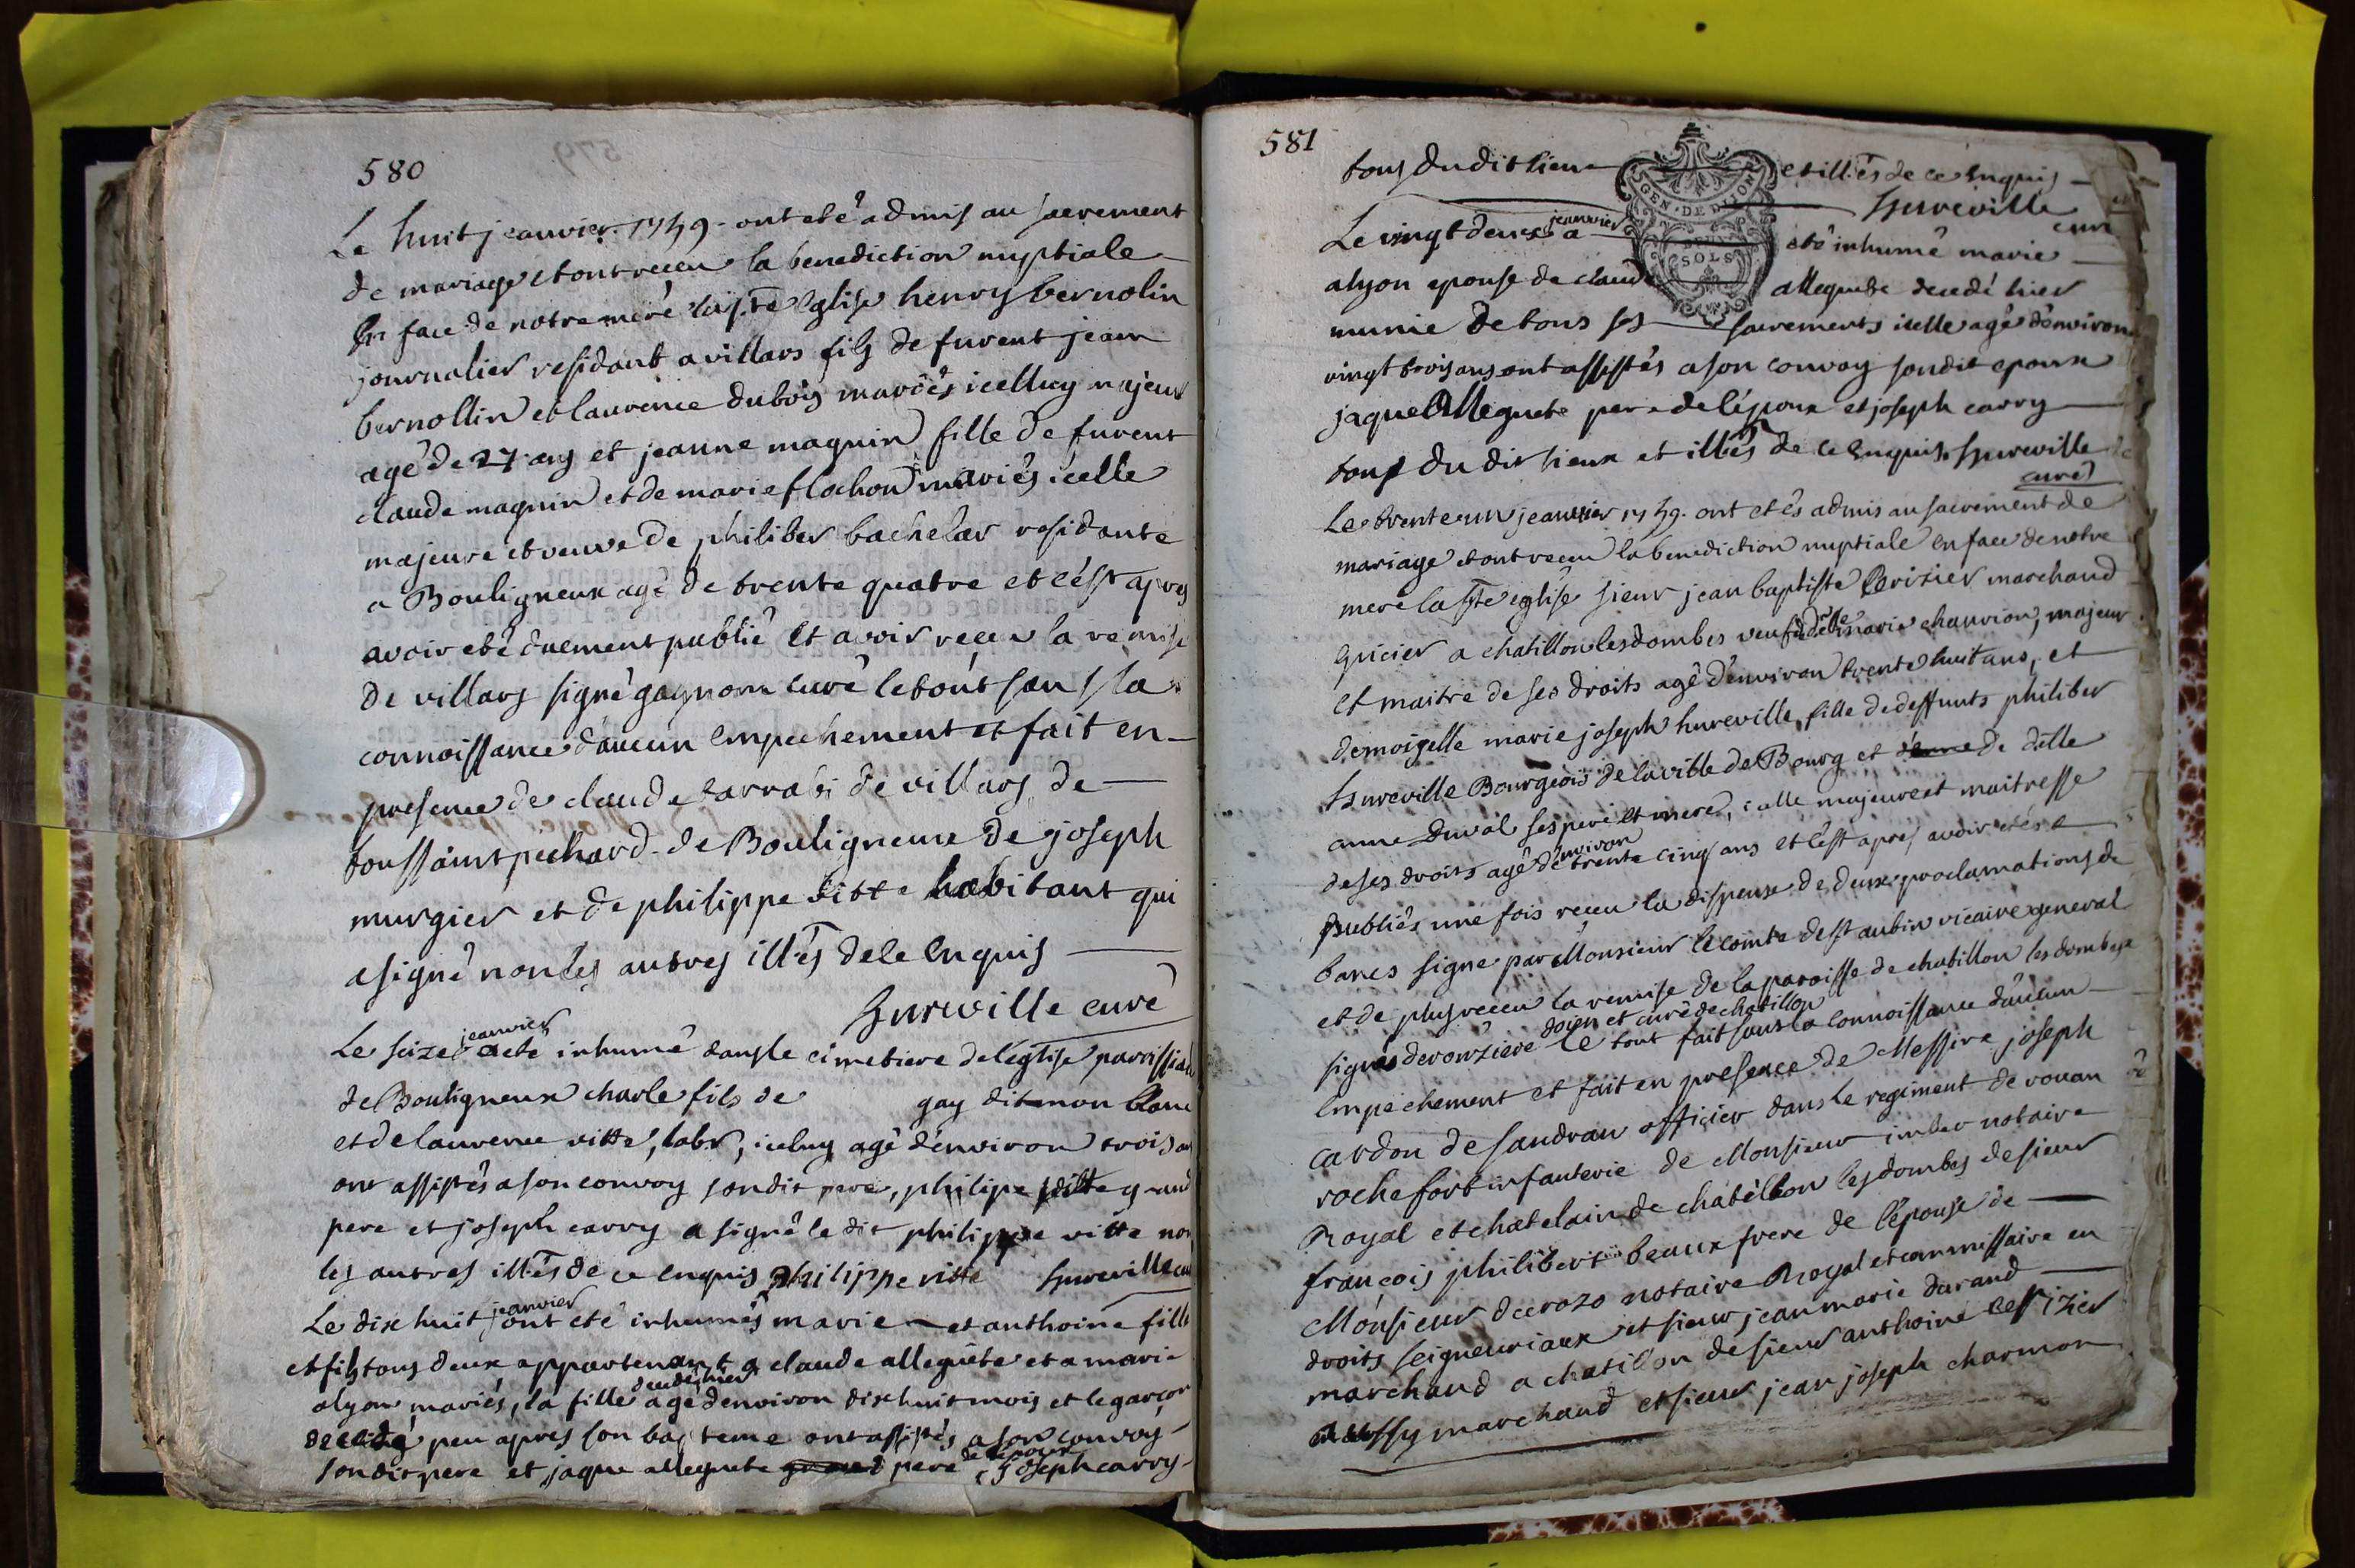 580
Le huit jeanvier 1749. ont eté admis au sacrement
de mariage et ont receu la benediction nuptiale
En face de notre mere la ste eglise henry bernolin
journalier residant a villars fils de furent jean
bernollin et laurence dubois mariés icelluy majeur
agé de 27 ans et jeanne magnin fille de furent
claude magnin et de marie flochon mariés icelle
majeure et veuve de philiber bachelar residante
a Bouligneux agé de trente quatre et c'est apres
avoir eté duement publié et avoir receu la remise
de villars signé gagnom curé le tout sans la
connoissance d'aucun empechement et fait en
presence de claude de villars de
toussaint pechard de Bouligneux de joseph
murgier et de philippe vitte habitant qui
a signé non les autres illés de ce enquis
hureville curé
Le seize jeanvier a eté inhumé dans le cimetiere de l'eglise paroissial
de Bouligneux charle fils de gay dit mon blanc
et de laurence vitte, labr, iceluy agé d'environ trois ans
ont assistés a son convoy son dit pere, philipe vitte grand
pere et joseph carry a signé le dit philippe vitte non
les autres illés de ce enquis philippe vitte hureville cu
Le dix huit jeanvier ont eté inhumés marie et anthoine fille
et fils tous deux appartenant a claude alleguete et a marie
alyon mariés, la fille decedé hier agé d'environ dix huit mois et le garçon
decedé peu apres son bapteme ont assistés a son convoy
son dit pere et jaque alleguete grand pere de l'epoux joseph carry
581
tous du dit lieu et illés de ce enquis
hureville
curé
GEN · DE DIJON
DEUX
SOLS
Le vingt deux jeanvier a eté inhumé marie
alyon epouse de claude alleguete decedé hier
munie de tous ses sacrements icelle agé d'environ
vingt trois ans ont assistés a son convoy son dit epoux
jaque Alleguete pere de l'époux et joseph carry
tous du dit lieux et illés de ce enquis hureville
curé
Le trente un jeanvier 1749. ont etés admis au sacrement de
mariage et ont receu la benediction nuptiale en face de notre
mere la ste eglise sieur jean baptiste Cerizier marchand
epicier a chatillon les dombes veuf de delle marie chauvion, majeur
et maitre de ses droits agé d'environ trente huit ans, et
demoiselle marie joseph hureville, fille de deffunts philiber
hureville Bourgeois de la ville de Bourg et de delle
anne Duval ses pere et mere, icelle majeure et maitresse
de ses droits agé d'environ trente cinq ans et c'est apres avoir etés
publiés une fois receu la dispense de deux proclamations de
bancs signe par Monsieur le comte de st aubin vicaire general
et de plus receu la remise de la paroisse de chatillon les dombes
signés derouziere doien et curé de chatillon le tout fait sans la connoissance d'aucun
empechement et fait en presence de Messire joseph
cardon de sandran officier dans le regiment de rouan
rochefort infanterie de Monsieur imber notaire
Royal et chatelain de chatillon les dombes de sieur
françois philibert beaux frere de l'épouse de
Monsieur decrozo notaire Royal et commissaire en
droits seigneuriaux et sieur jean marie durand
marchand a chatillon de sieur anthoine cerizier
aussy marchand et sieur jean joseph charmon